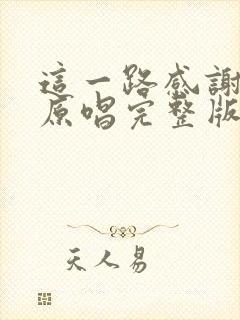 這一路感謝
原唱完整版
天人易